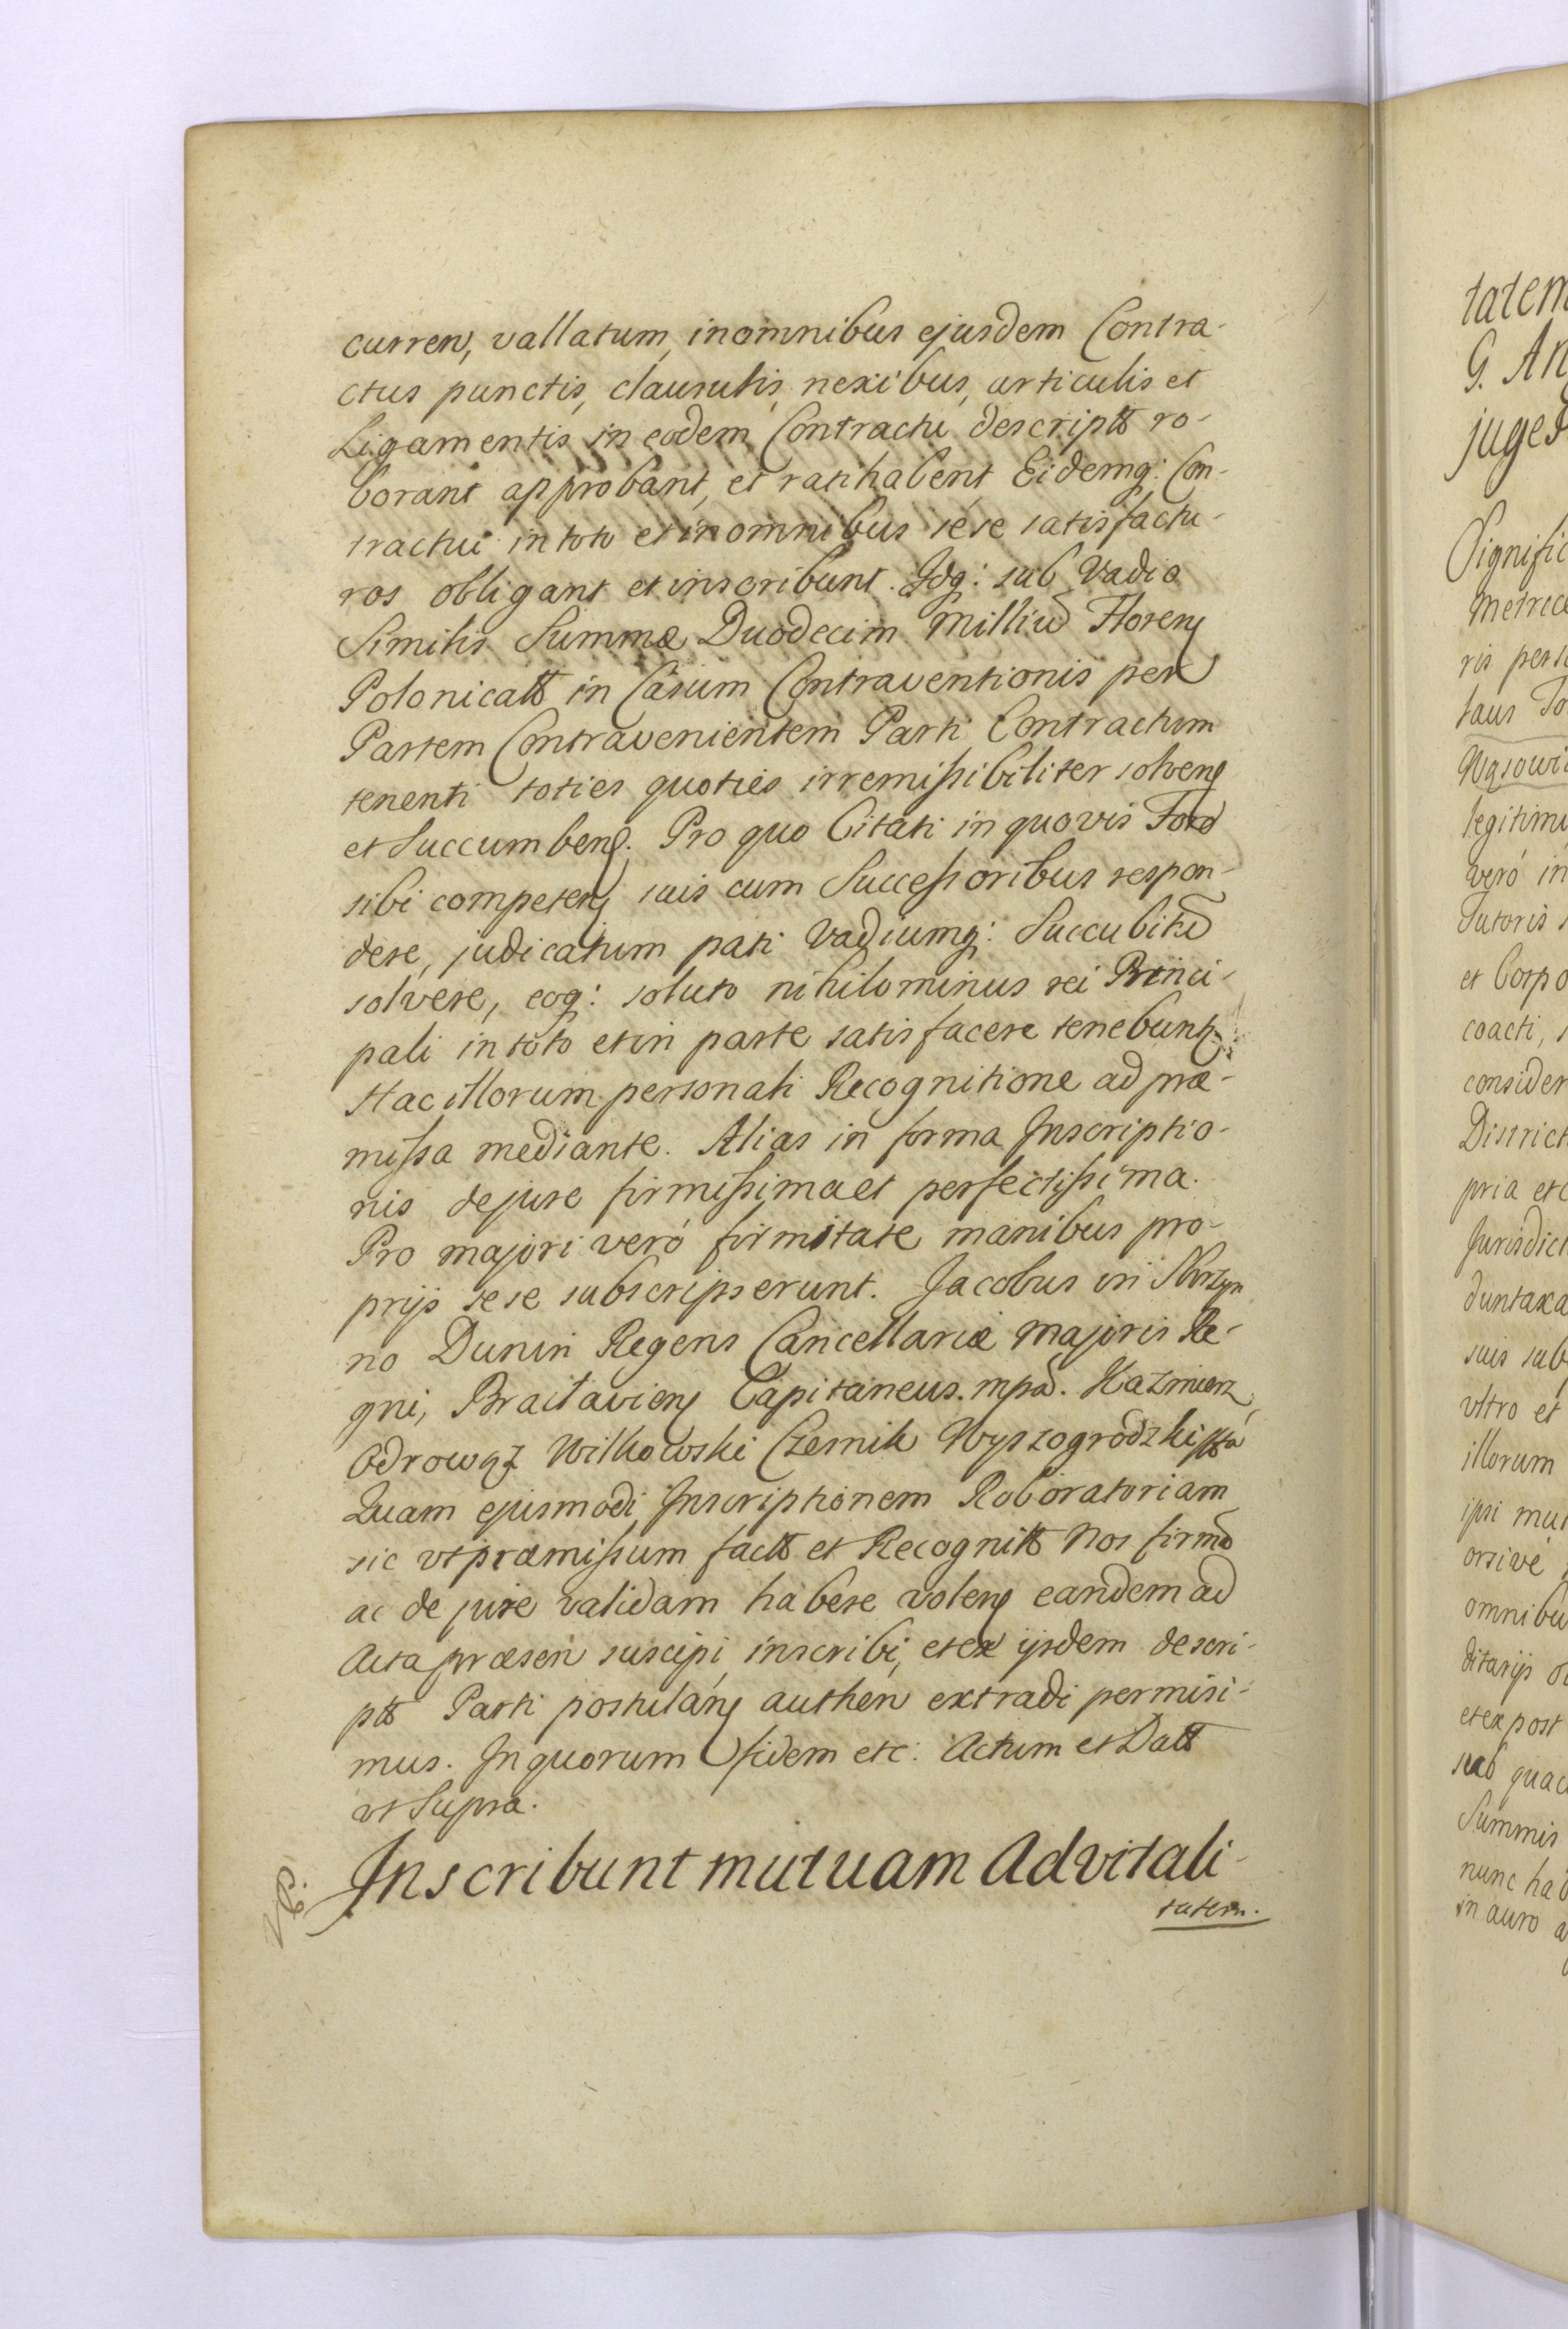 curren, vallatum, in omnibus ejusdem Contra-
ctus punctis, clausulis, nexibus, articulis et
Ligamentis in eodem Contractu descriptt ro-
borant approbant, et ratihabent Eidemq: Con-
tractui in toto et in omnibus sese satisfactu-
ros obligant et inscribunt. Idq: sub Vadio
Similis Summæ Duodecim Milliũ Floren
Polonicatt in Casum Contraventionis per
Partem Contravenientem Parti Contractum
tenenti toties quoties irremissibiliter solven
et Succumben. Pro quo Citati in quovis Foro
sibi competen suis cum Successoribus respon-
dere, judicatum pati Vadiumq: Succubitũ
solvere, eoq: soluto nihilominus rei Princi-
pali in toto et in parte satisfacere tenebunt
Hac illorum personali Recognitione ad præ-
missa mediante. Alias in forma Inscriptio-
nis de jure firmissima et perfectissima.
Pro majori veró firmitate manibus pro-
prijs sese subscripserunt. Jacobus in Skrzyn
no Dunin Regens Cancellariæ Majoris Re-
gni, Braclavien Capitaneus. mpã. Kazmierz
Odrowąz Wilkowski Czesnik Wyszogrodzki
Quam ejusmodi Inscriptionem Roboratoriam
sic vt præmissum factt et Recognitt Nos firmã
ac de jure validam habere volen eandem ad
Acta præsen suscipi, inscribi, et ex ijsdem descri-
ptt Parti postulan authen extradi permisi-
mus. In quorum fidem etc. Actum et Datt
vt Supra.
Inscribunt mutuam Advitali-
tatem.
tatem
G. An
juged
Signific
Metrice
ris perso
taus
Wąsowi
legitimi
veró in
Tutoris
et Corpo
coacti,
consider
District
pria et
Jurisdict
duntaxa
suis sub
vltro et
illorum
ipsi mu
orsivé
omnibu
ditarijs
et ex post
sub quac
Summis
nunc hab
in auro a